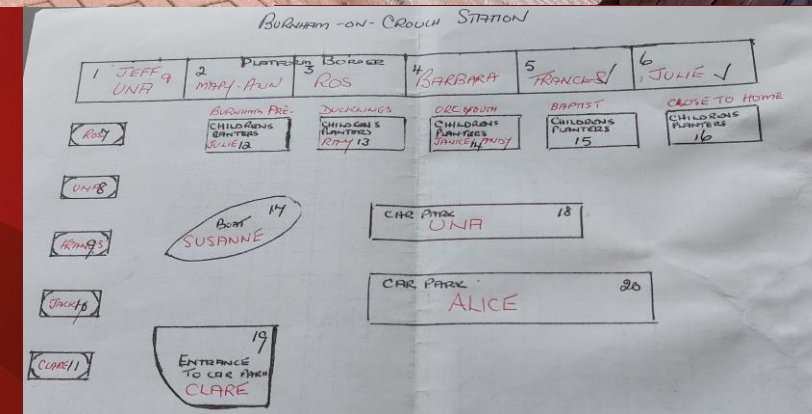 BURNHAM-ON-CROUCH STATION
PLATFORM BORDER
1 JEFF
UNA
2
MARY-AUN
3
ROS
4
BARBARA
5
FRANCES
6
JULIE ✓
BURNHAM PRE-
CHILDRENS
PLANTERS
JULIE 12
DUCKLINGS
CHILDRENS
PLANTERS
RAY 13
YOUTH
CHILDRENS
PLANTERS
JANICE 14 ANDY
BAPTIST
CHILDRENS
PLANTERS
15
CLOSE TO HOME
CHILDRENS
PLANTERS
16
ROS 7
UNA 8
FRANCES 9
JACK 10
CLARE 11
17
BOAT
SUSANNE
CAR PARK 18
UNA
CAR PARK 20
ALICE
19
ENTRANCE
TO CAR PARK
CLARE